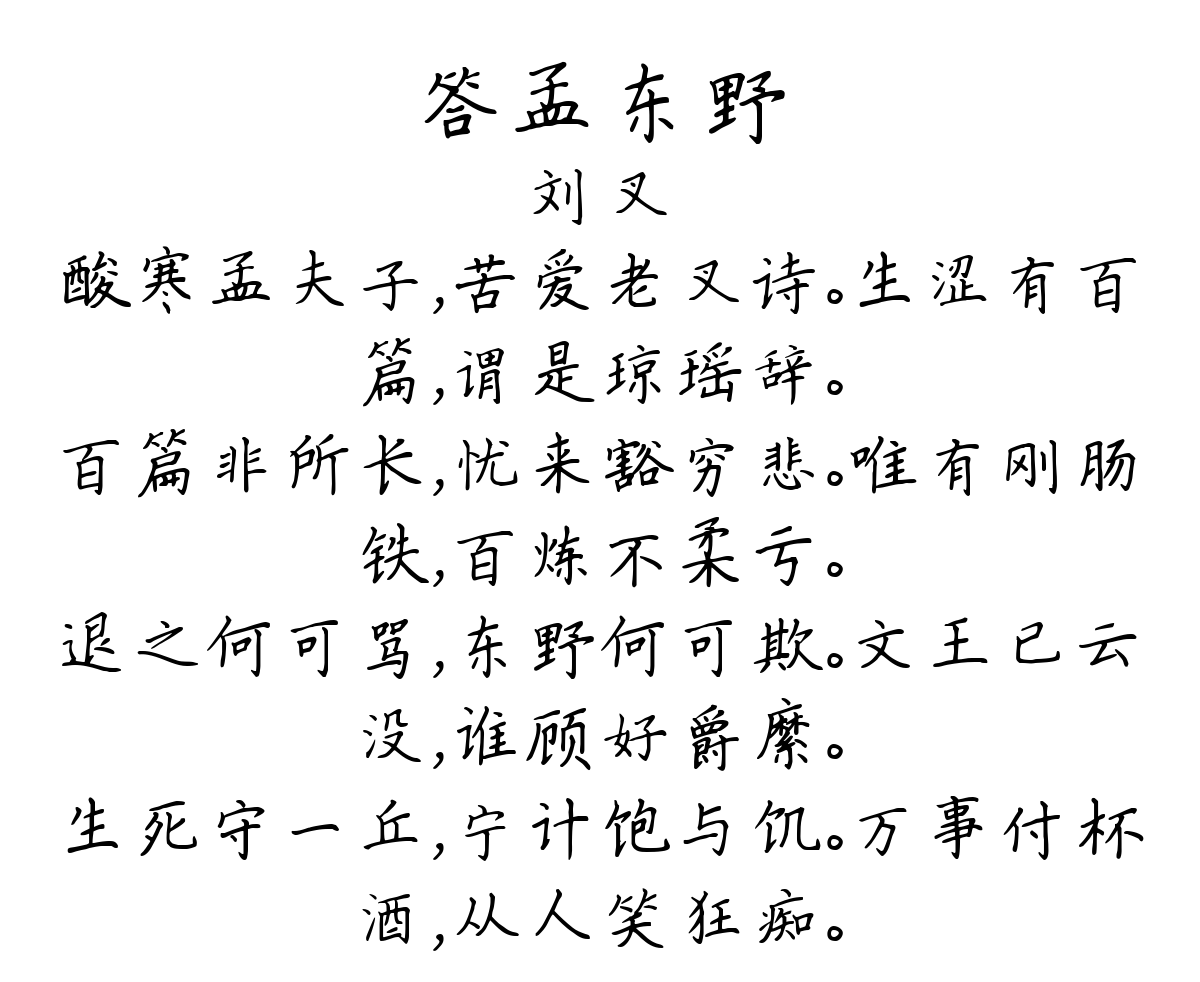 答孟东野
刘叉
酸寒孟夫子,苦爱老叉诗。生涩有百
篇,谓是琼瑶辞。
百篇非所长,忧来豁穷悲。唯有刚肠
铁,百炼不柔亏。
退之何可骂,东野何可欺。文王已云
没,谁顾好爵縻。
生死守一丘,宁计饱与饥。万事付杯
酒,从人笑狂痴。